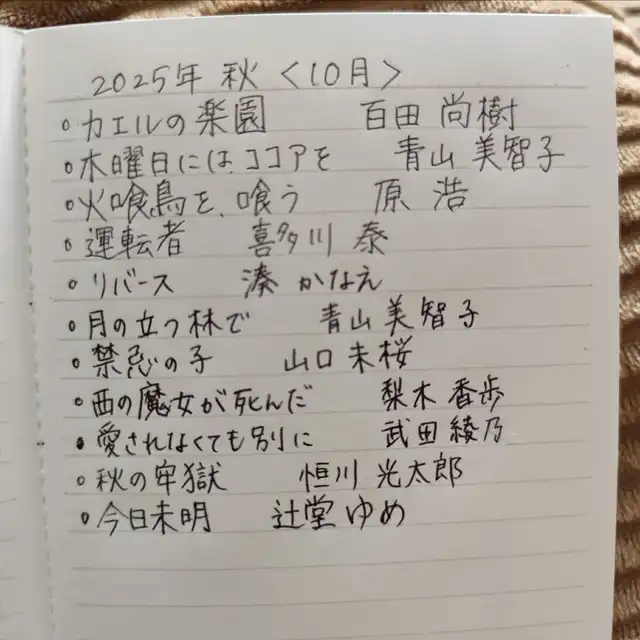 2025年 秋 〈10月〉
○カエルの楽園 百田 尚樹
○木曜日にはココアを 青山 美智子
○火喰鳥を、喰う 原 浩
○運転者 喜多川 泰
○リバース 湊 かなえ
○月の立つ林で 青山 美智子
○禁忌の子 山口 未桜
○西の魔女が死んだ 梨木 香歩
○愛されなくても別に 武田 綾乃
○秋の牢獄 恒川 光太郎
○今日未明 辻堂 ゆめ